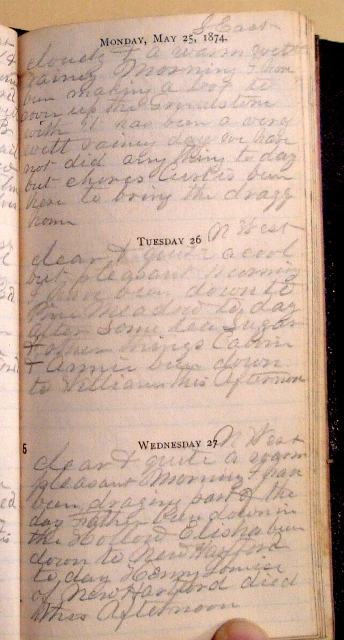 S East
MONDAY, MAY 25, 1874.
cloudy & a warm wett
rainey Morning I have
been making a box to
cover up the Grindstone
with it has been a very
wett rainey day we have
not did any thing to day
but chores Curtis been
here to bring the dragg
home
TUESDAY 26 N West
clear & quite a cool
but pleasant Morning
I have been down to
the Meadow to day
after some tea Sugar
& other things Calvin
& Annie been down
to Williams this Afternoon
6
WEDNESDAY 27 N West
clear & quite a warm
pleasant Morning I have
been draging part of the
day Father been down in
the Hollow Elisha been
down to New Hartford
to day Henry
of New Hartford died
this Afternoon